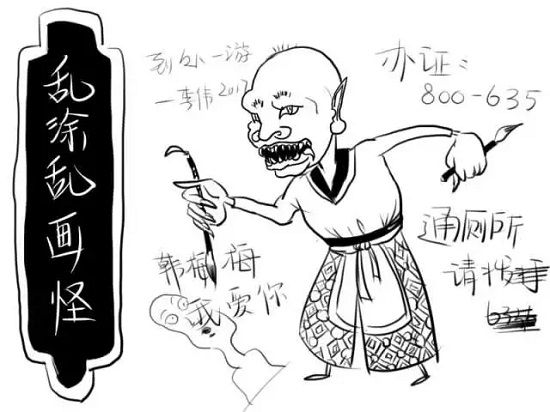 乱涂乱画怪
到此一游
—李伟2017
办证:
800-635
韩梅梅
我爱你
通厕所
请拨